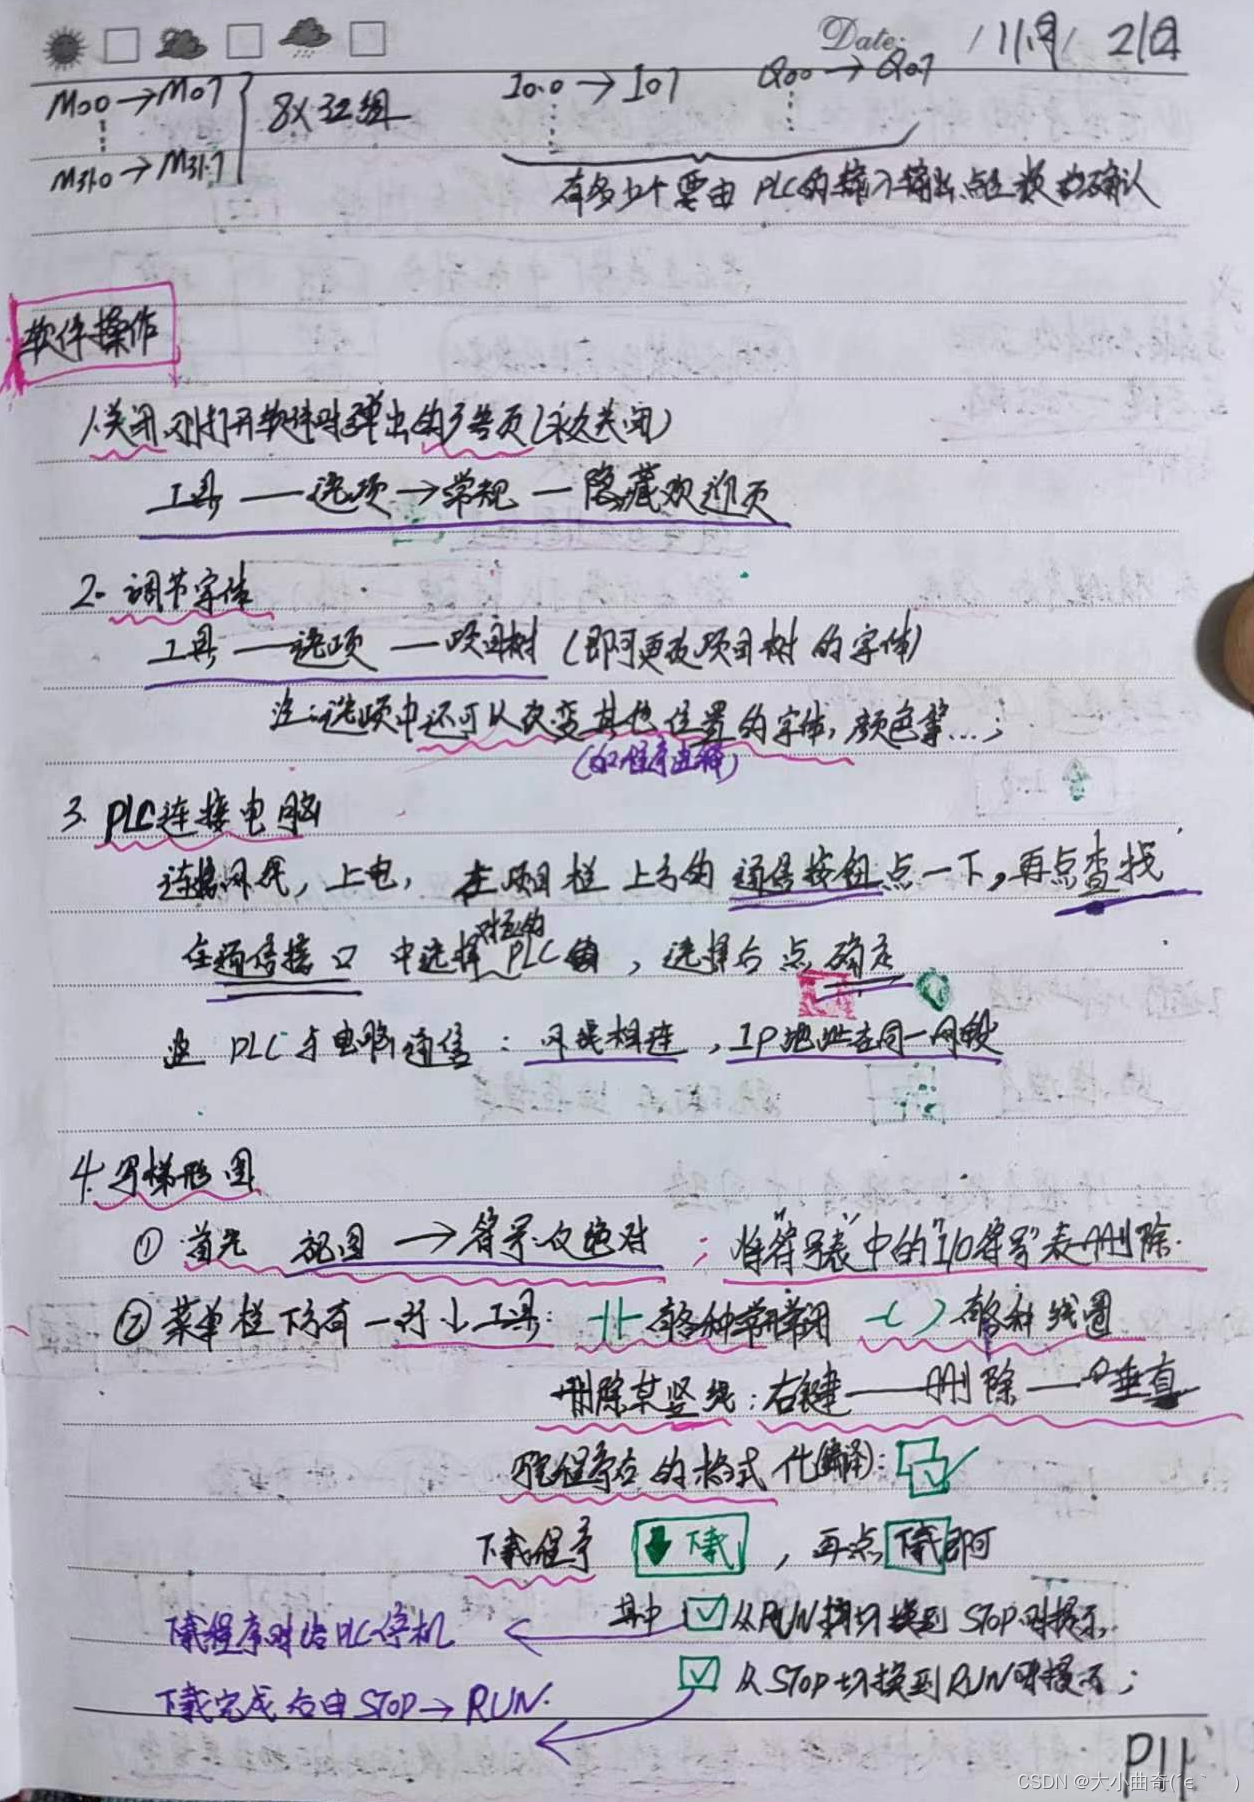 Date: 11月 21日
M0.0→M0.7
I0.0→I0.7 Q0.0→Q0.7
8×32组
M31.0→M31.7
有多少个需要由PLC的输入输出点数来确认
软件操作
1.关闭刚打开软件时弹出的广告页(永久关闭)
工具——选项→常规—隐藏欢迎页
2. 调节字体
工具——选项——项目树(即可更改项目树的字体)
注:选项中还可以改变其他位置的字体,颜色等...;
(如程序注释)
3. PLC连接电脑
连接网线,上电,在项目栏上方的通信按钮点一下,再点查找
在通信接口中选择对应的PLC,选择后点确定
注 PLC与电脑通信:网线相连,IP地址在同一网段
4.写梯形图
① 首先 视图→符号仅绝对;将"符号表"中的"I/O符号"表删除.
② 菜单栏下方有一行小工具: ⊣⊢有各种常开常闭 -( )有各种线圈
删除某竖线:右键——删除——垂直
写完程序后的格式化(编译):
下载程序 下载,再点下载即可
其中 ☑从RUN切换到STOP时提示.
下载程序时给PLC停机
☑从STOP切换到RUN时提示;
下载完成后由STOP→RUN.
P11
CSDN @大小曲奇(´ɵ` )